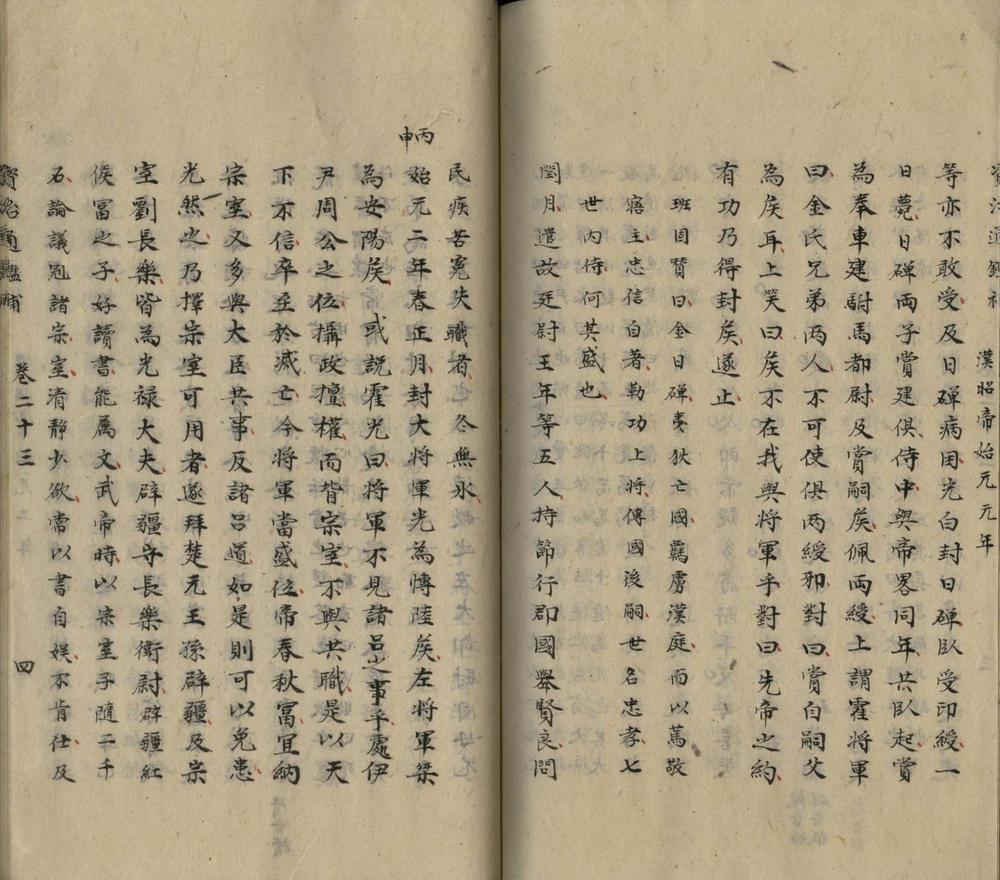 資治通鑑補
漢昭帝始元元年
等亦不敢受及日磾病困光白封日磾臥受印綬一
日薨日磾両子賞建俱侍中與帝畧同年共臥起賞
為奉車建駙馬都尉及賞嗣矦佩両綬上謂霍將軍
曰金氏兄弟两人不可使俱两綬邪對曰賞自嗣父
為矦耳上笑曰矦不在我與将軍乎對曰先帝之約
有功乃得封矦遂止
班固賛曰金日磾夷狄亡國羈虜漢庭而以篤敬
寤主忠信自著勒功上將傳國後嗣世名忠孝七
世内侍何其盛也
閏月遣故廷尉王年等五人持節行郡國舉賢良問
民疾苦寃失職者冬無氷
丙申
始元二年春正月封大将軍光為博陸矦左将軍桀
為安陽矦或説霍光曰将軍不見諸吕之事乎處伊
尹周公之位攝政擅權而背宗室不與共職是以天
下不信卒至於滅亡今将軍當盛位帝春秋富冝納
宗室又多與大臣共事反諸吕道如是則可以免患
光然之乃擇宗室可用者遂拜楚元王孫辟疆及宗
室劉長樂皆為光禄大夫辟疆守長樂衛尉辟疆紅
侯富之子好讀書能属文武帝時以宗室子隨二千
石論議冠諸宗室清静少欲常以書自娱不肯仕及
資治通鑑補
卷二十三
四